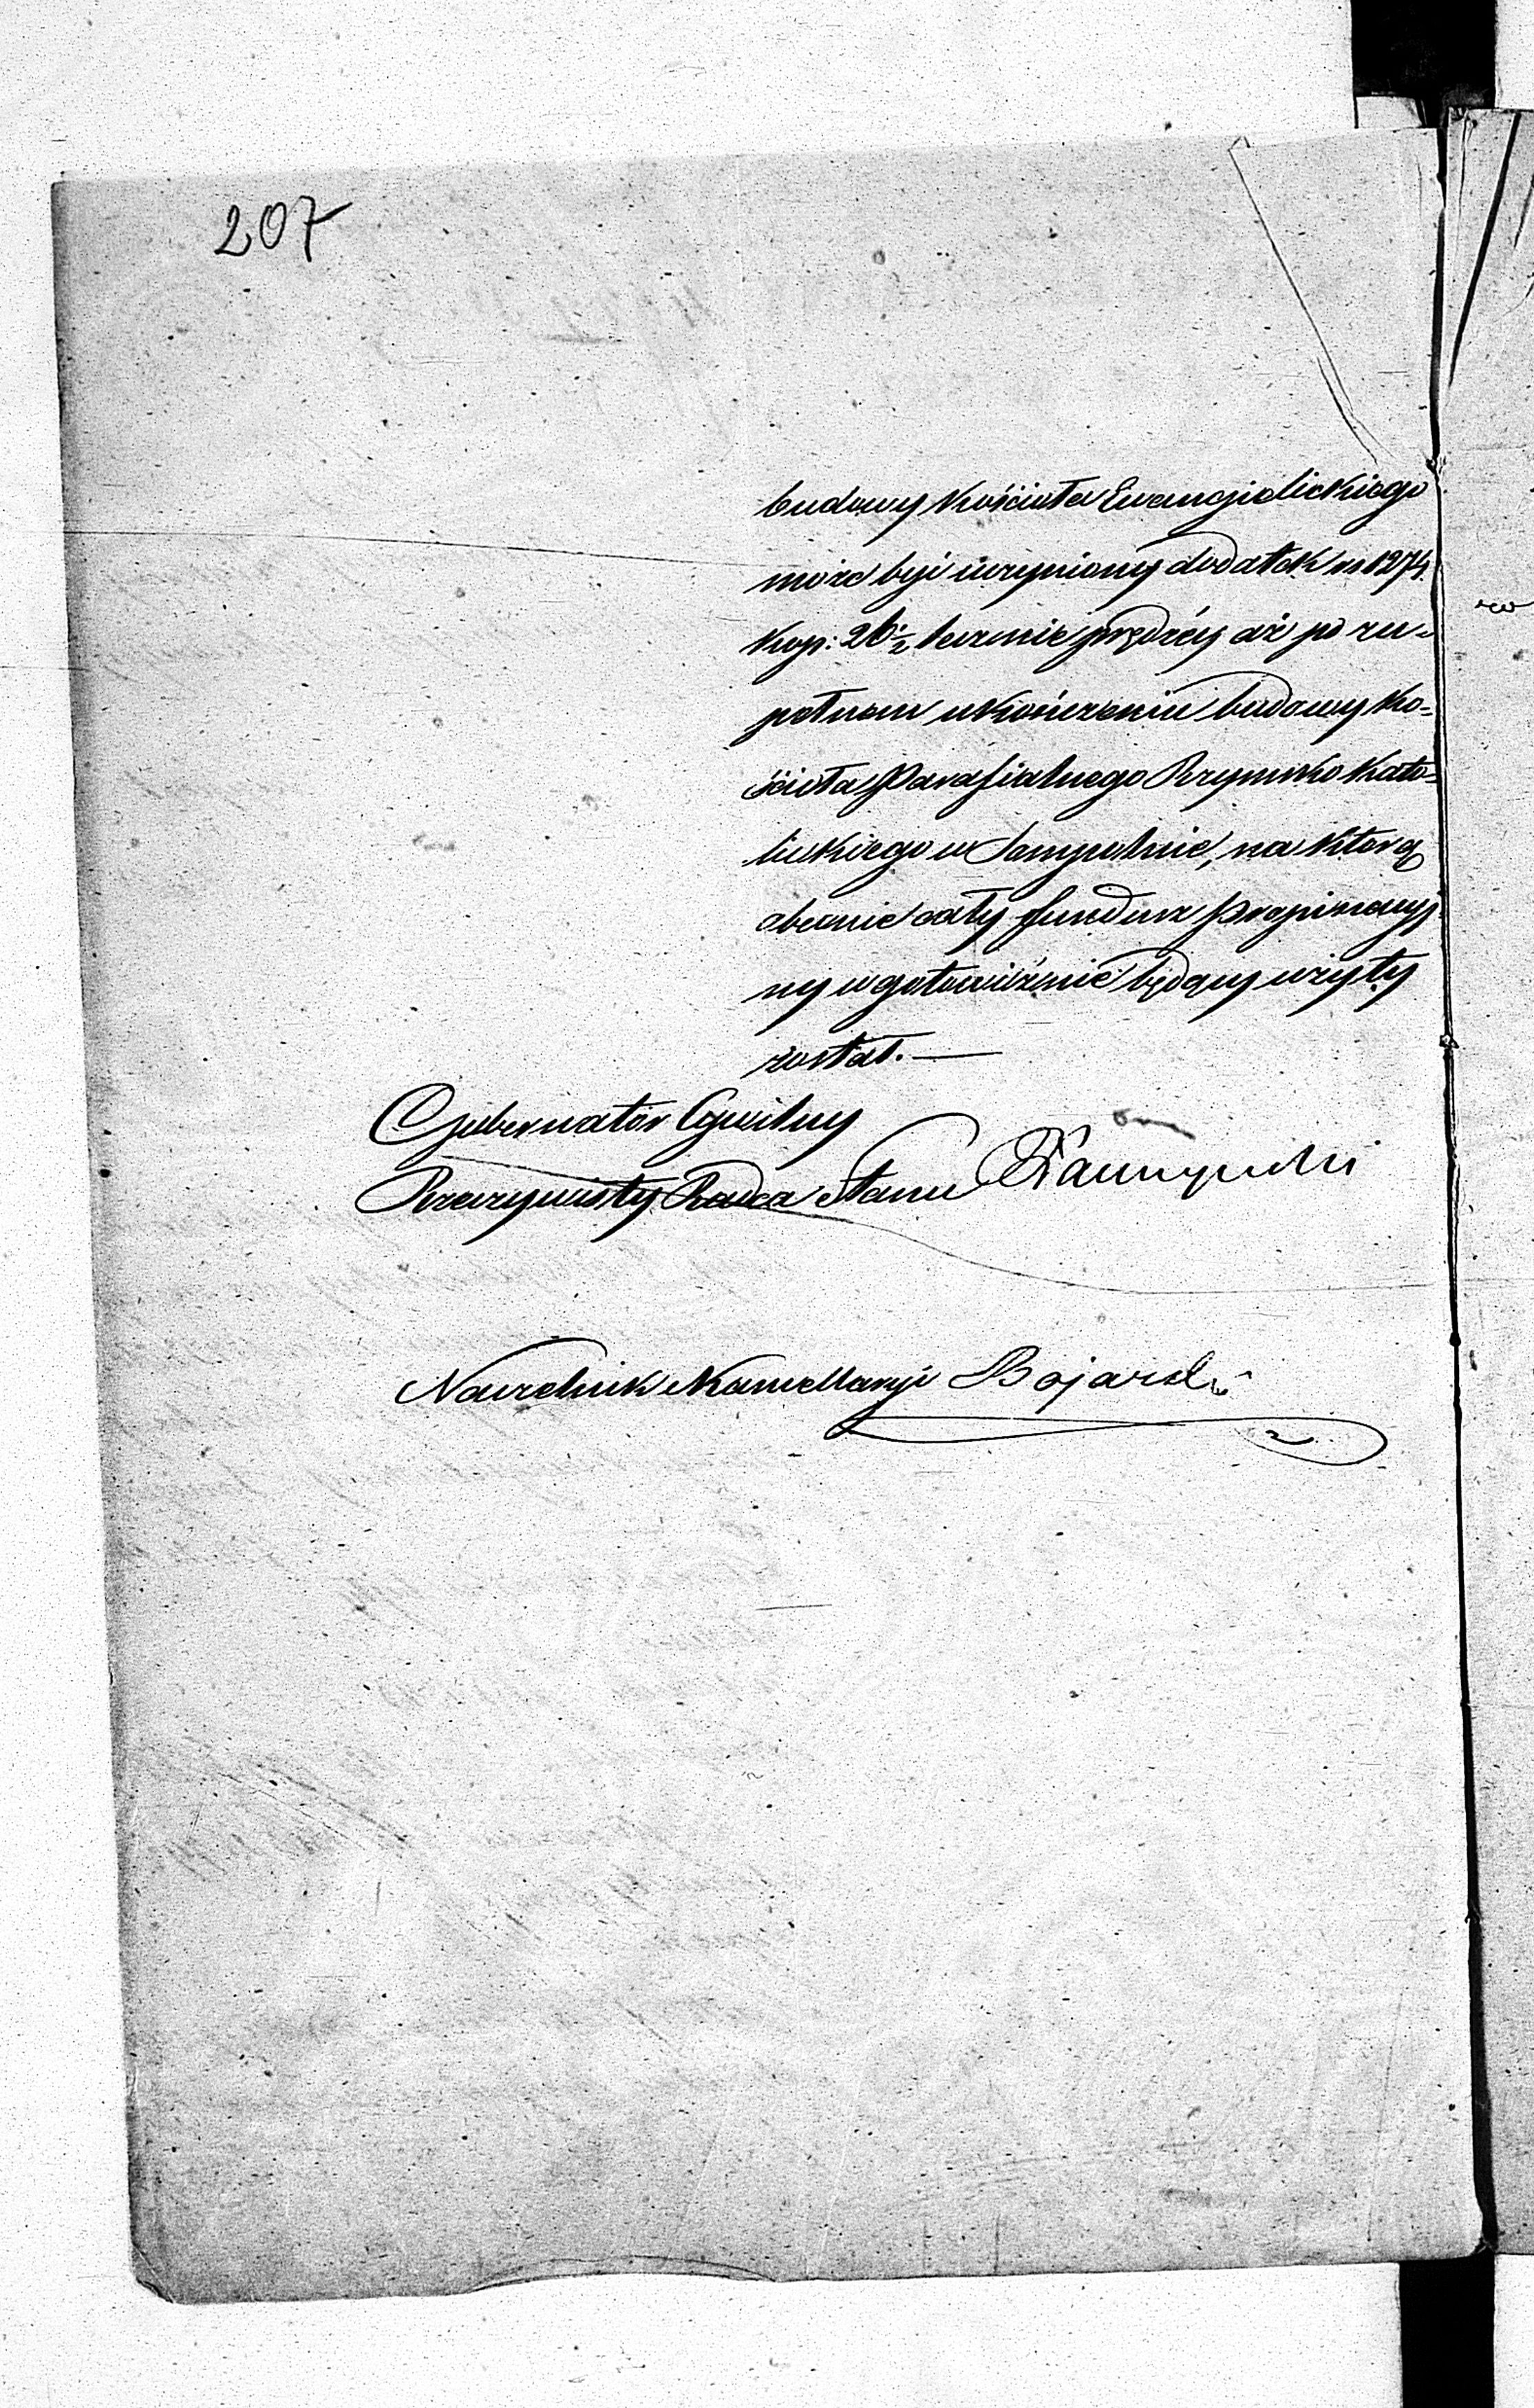 207
budowy Kościoła Ewangielickiego
może być uczyniony dodatek rs 1274.
kop: 26½ lecz nie prędzéj aż po zu-
pełnem ukończeniu budowy Ko-
ścioła Parafialnego Rzymsko Kato-
lickiego w Sompolnie, na którą
obecnie cały fundusz propinacyj-
ny w gotowiźnie będący użyty
został. —
Gubernator Cywilny
Rzeczywisty Radca Stanu
Naczelnik Kancellaryi